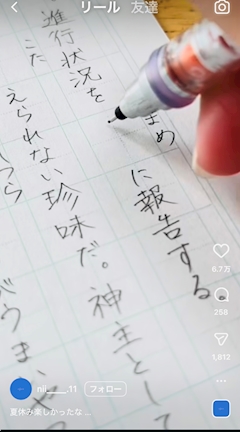 リール 友達
まめに報告する。
進行状況を
こた
えられない珍味だ。神主として
6.7万
258
1,812
nii____.11
フォロー
夏休み楽しかったな ...